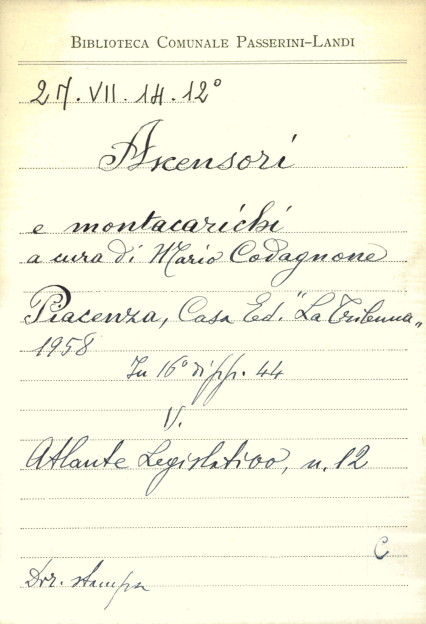 BIBLIOTECA COMUNALE PASSERINI-LANDI
27.VII.14.12°
Ascensori
e montacarichi
a cura di Mario Codagnone
Piacenza, Casa Ed. "La Tribuna"
1958
In 16° di pp. 44
V.
Atlante Legislativo, n. 12
C
Dir. stampa